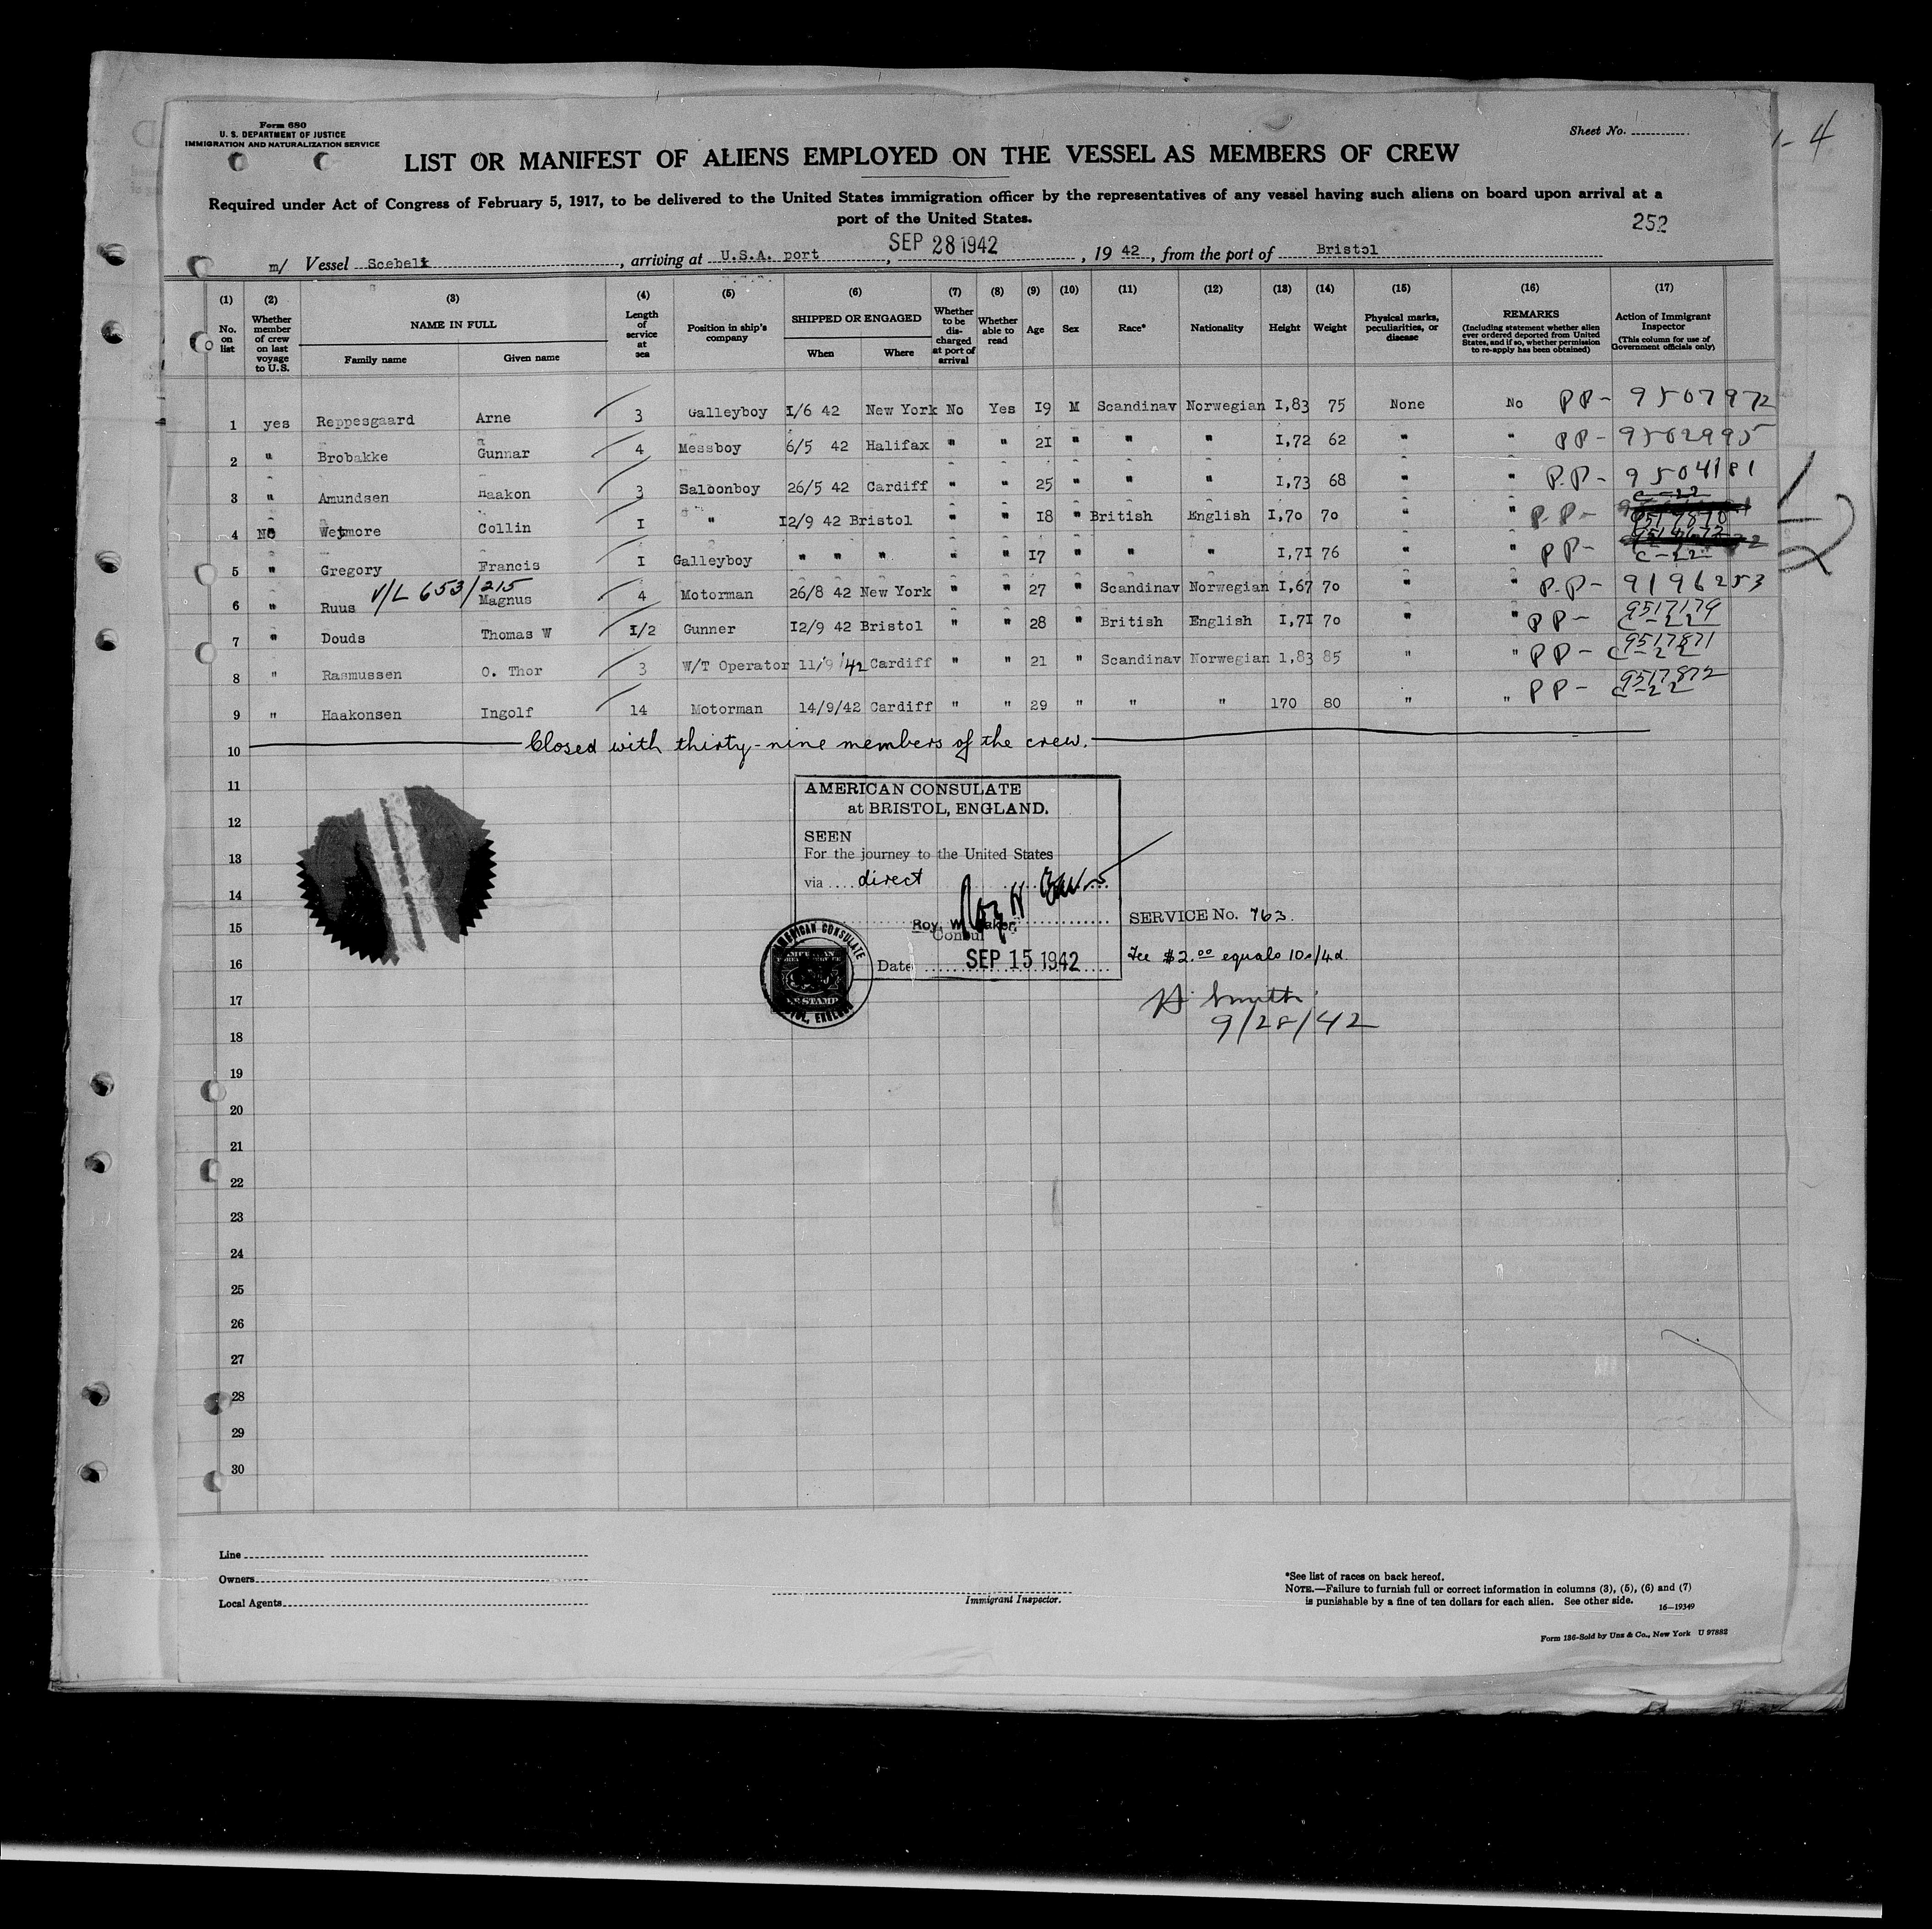 Form 680
U. S. DEPARTMENT OF JUSTICE
IMMIGRATION AND NATURALIZATION SERVICE
Sheet No.
1-4
LIST OR MANIFEST OF ALIENS EMPLOYED ON THE VESSEL AS MEMBERS OF CREW
Required under Act of Congress of February 5, 1917, to be delivered to the United States immigration officer by the representatives of any vessel having such aliens on board upon arrival at a
port of the United States.
252
m/ Vessel Scebeli, arriving at U.S.A. port, SEP 28 1942, 19 42, from the port of Bristol
(1) (2) (3) (4) (5) (6) (7) (8) (9) (10) (11) (12) (13) (14) (15) (16) (17)
No. on list
Whether member of crew on last voyage to U.S.
NAME IN FULL
Family name Given name
Length of service at sea
Position in ship's company
SHIPPED OR ENGAGED
When Where
Whether to be discharged at port of arrival
Whether able to read
Age
Sex
Race*
Nationality
Height
Weight
Physical marks, peculiarities, or disease
REMARKS
(Including statement whether alien ever ordered deported from United States, and if so, whether permission to re-apply has been obtained)
Action of Immigrant Inspector
(This column for use of Government officials only)
1 yes Reppesgaard Arne 3 Galleyboy 1/6 42 New York No Yes 19 M Scandinav Norwegian 1,83 75 None No PP- 9507972
2 " Brobakke Gunnar 4 Messboy 6/5 42 Halifax " " 21 " " " 1,72 62 " " PP- 9502995
3 " Amundsen Haakon 3 Saloonboy 26/5 42 Cardiff " " 25 " " " 1,73 68 " " P.P- 9504181
4 No Wetmore Collin 1 " 12/9 42 Bristol " " 18 " British English 1,70 70 " " P.P- C-22 9517870
5 " Gregory Francis 1 Galleyboy " " " " " 17 " " " 1,71 76 " " PP- C-22
6 " Ruus V/L 653/215 Magnus 4 Motorman 26/8 42 New York " " 27 " Scandinav Norwegian 1,67 70 " " P.P- 9196253
7 " Douds Thomas W 1/2 Gunner 12/9 42 Bristol " " 28 " British English 1,71 70 " " PP- 9517179 C-22
8 " Rasmussen O. Thor 3 W/T Operator 11/9/42 Cardiff " " 21 " Scandinav Norwegian 1,83 85 " " PP- 9517871 C-22
9 " Haakonsen Ingolf 14 Motorman 14/9/42 Cardiff " " 29 " " " 170 80 " " PP- 9517872 C-22
10 Closed with thirty-nine members of the crew.
11
12
13
14
15
16
17
18
19
20
21
22
23
24
25
26
27
28
29
30
AMERICAN CONSULATE
at BRISTOL, ENGLAND.
SEEN
For the journey to the United States
via direct
Roy W. Baker
Consul
Date SEP 15 1942
AMERICAN CONSULATE
BRISTOL, ENGLAND
SERVICE No. 763.
Fee $2.00 equals 10s/4d.
H Smith
9/28/42
Line
Owners
Local Agents
Immigrant Inspector.
*See list of races on back hereof.
NOTE.—Failure to furnish full or correct information in columns (3), (5), (6) and (7)
is punishable by a fine of ten dollars for each alien. See other side.
16—19349
Form 136-Sold by Unz & Co., New York U 97882